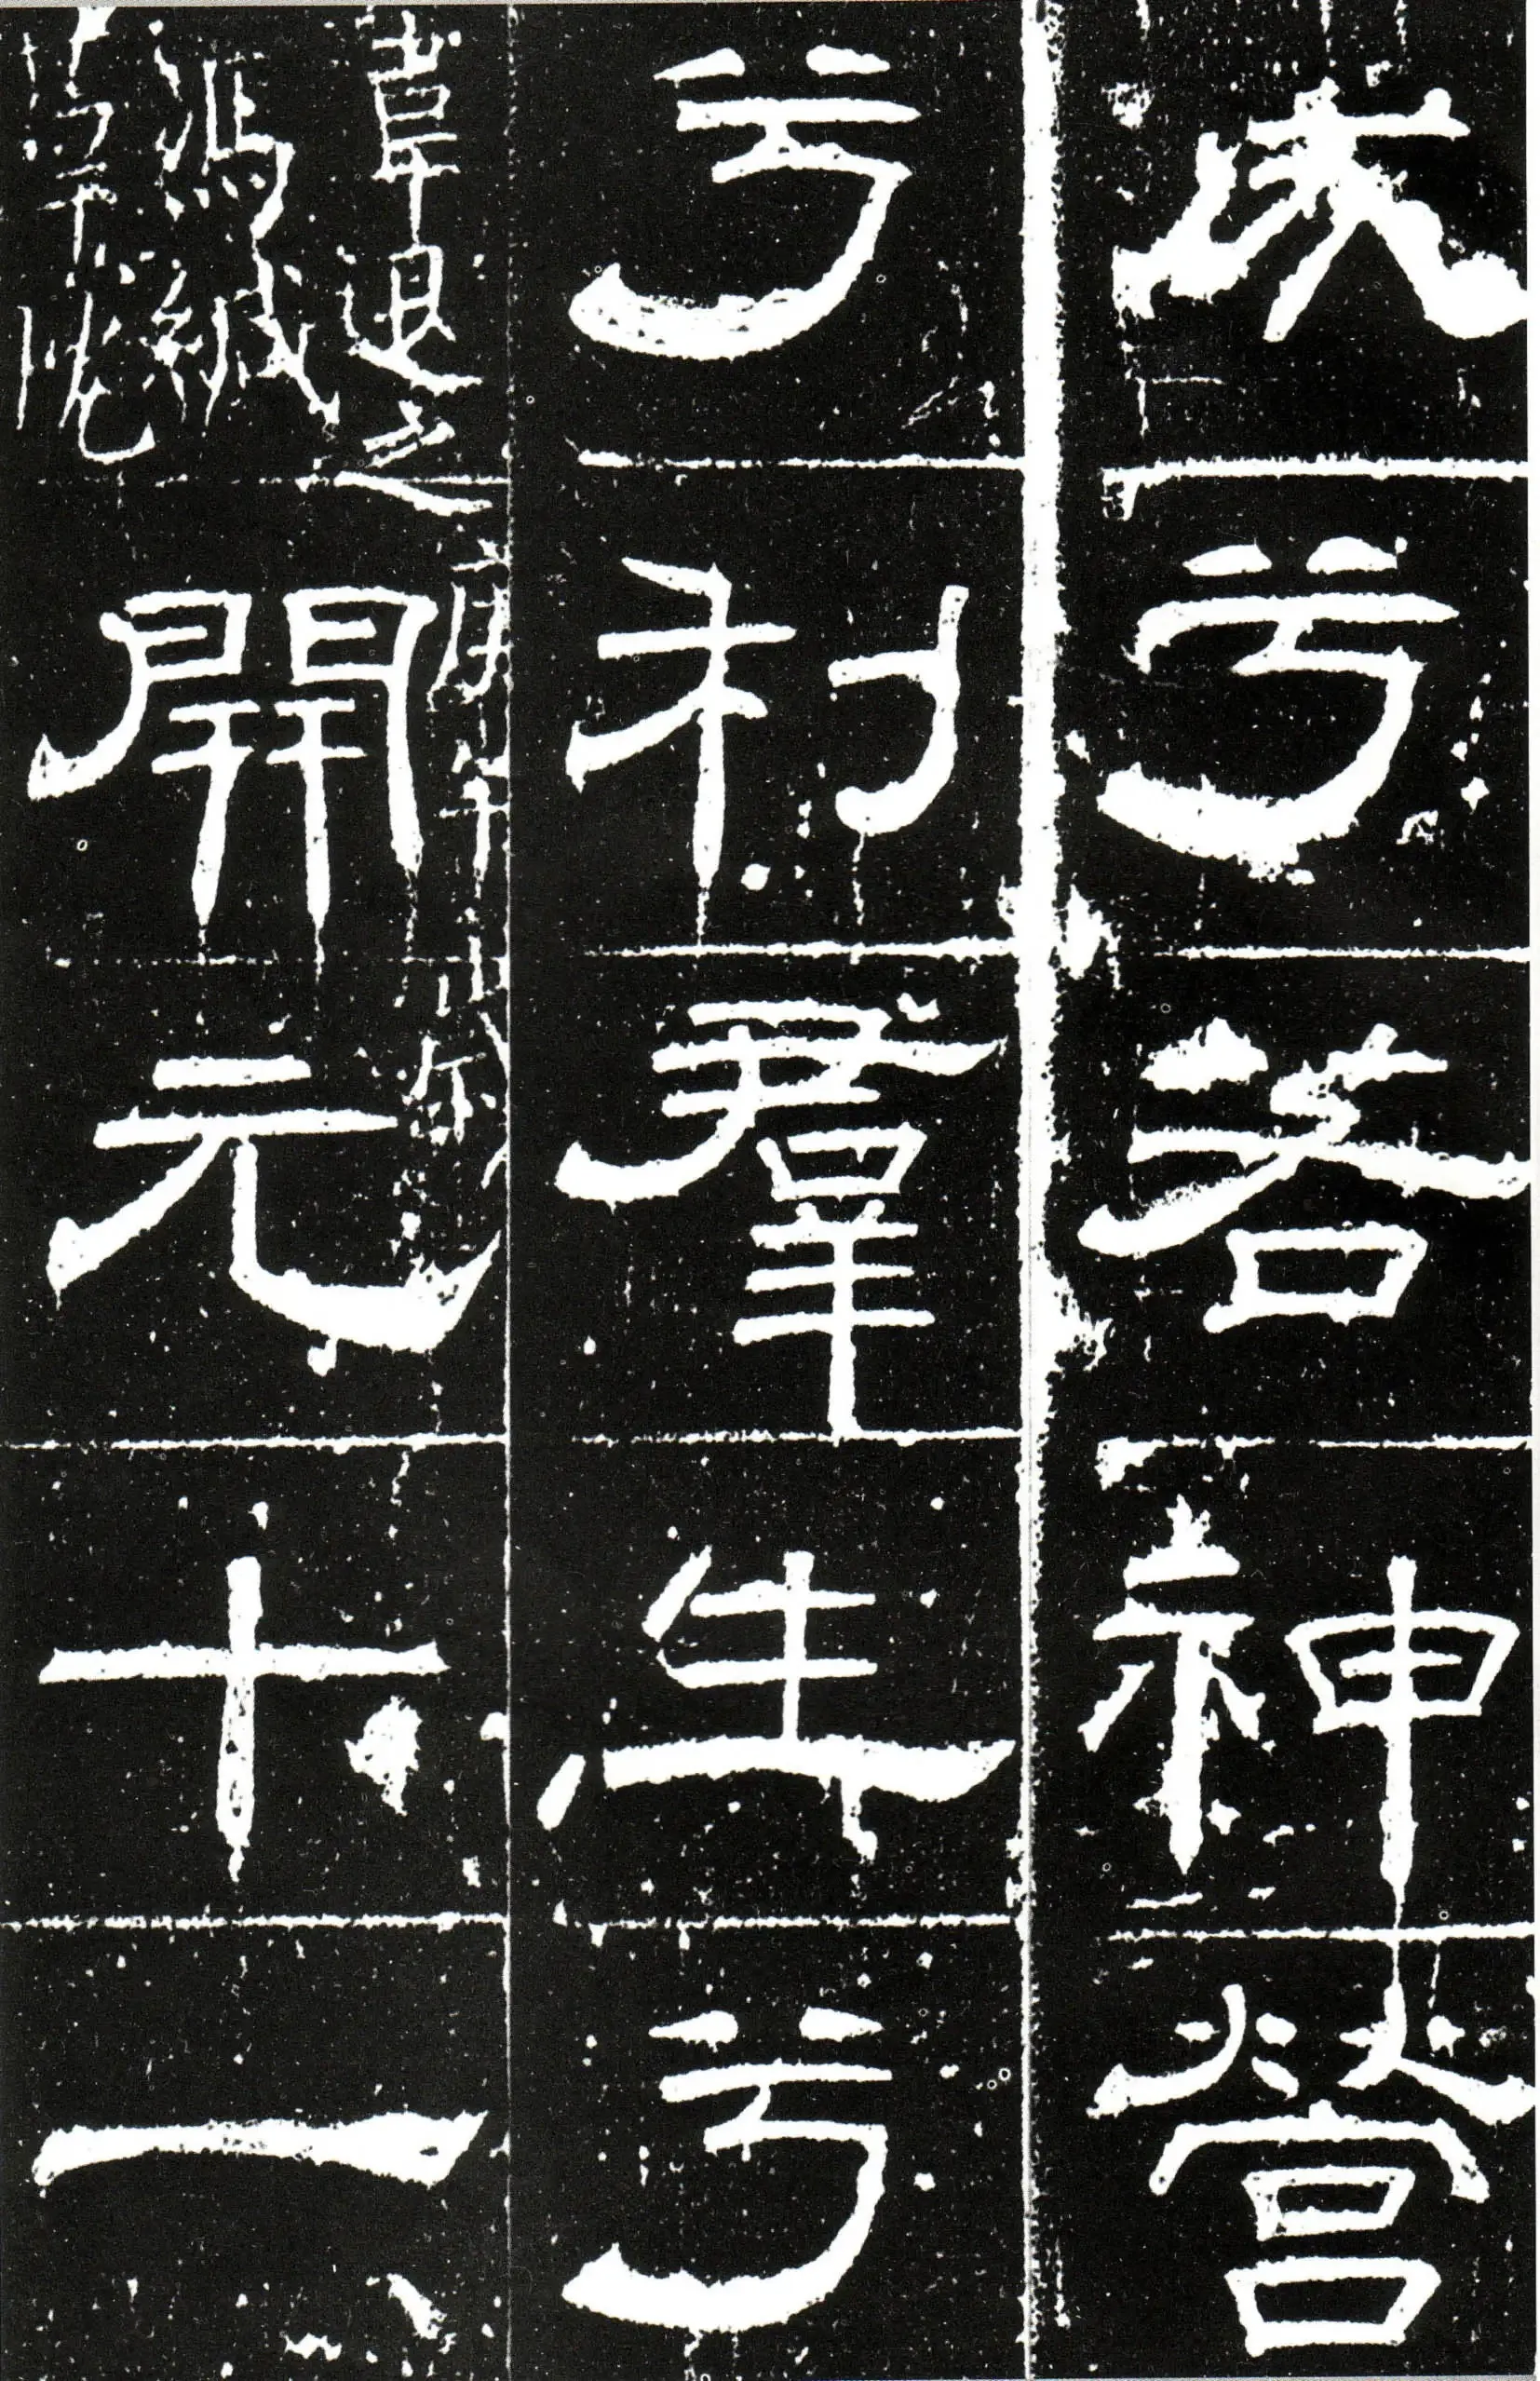 兮若神營
兮利羣生兮
韋退之
馮緘
開元十一